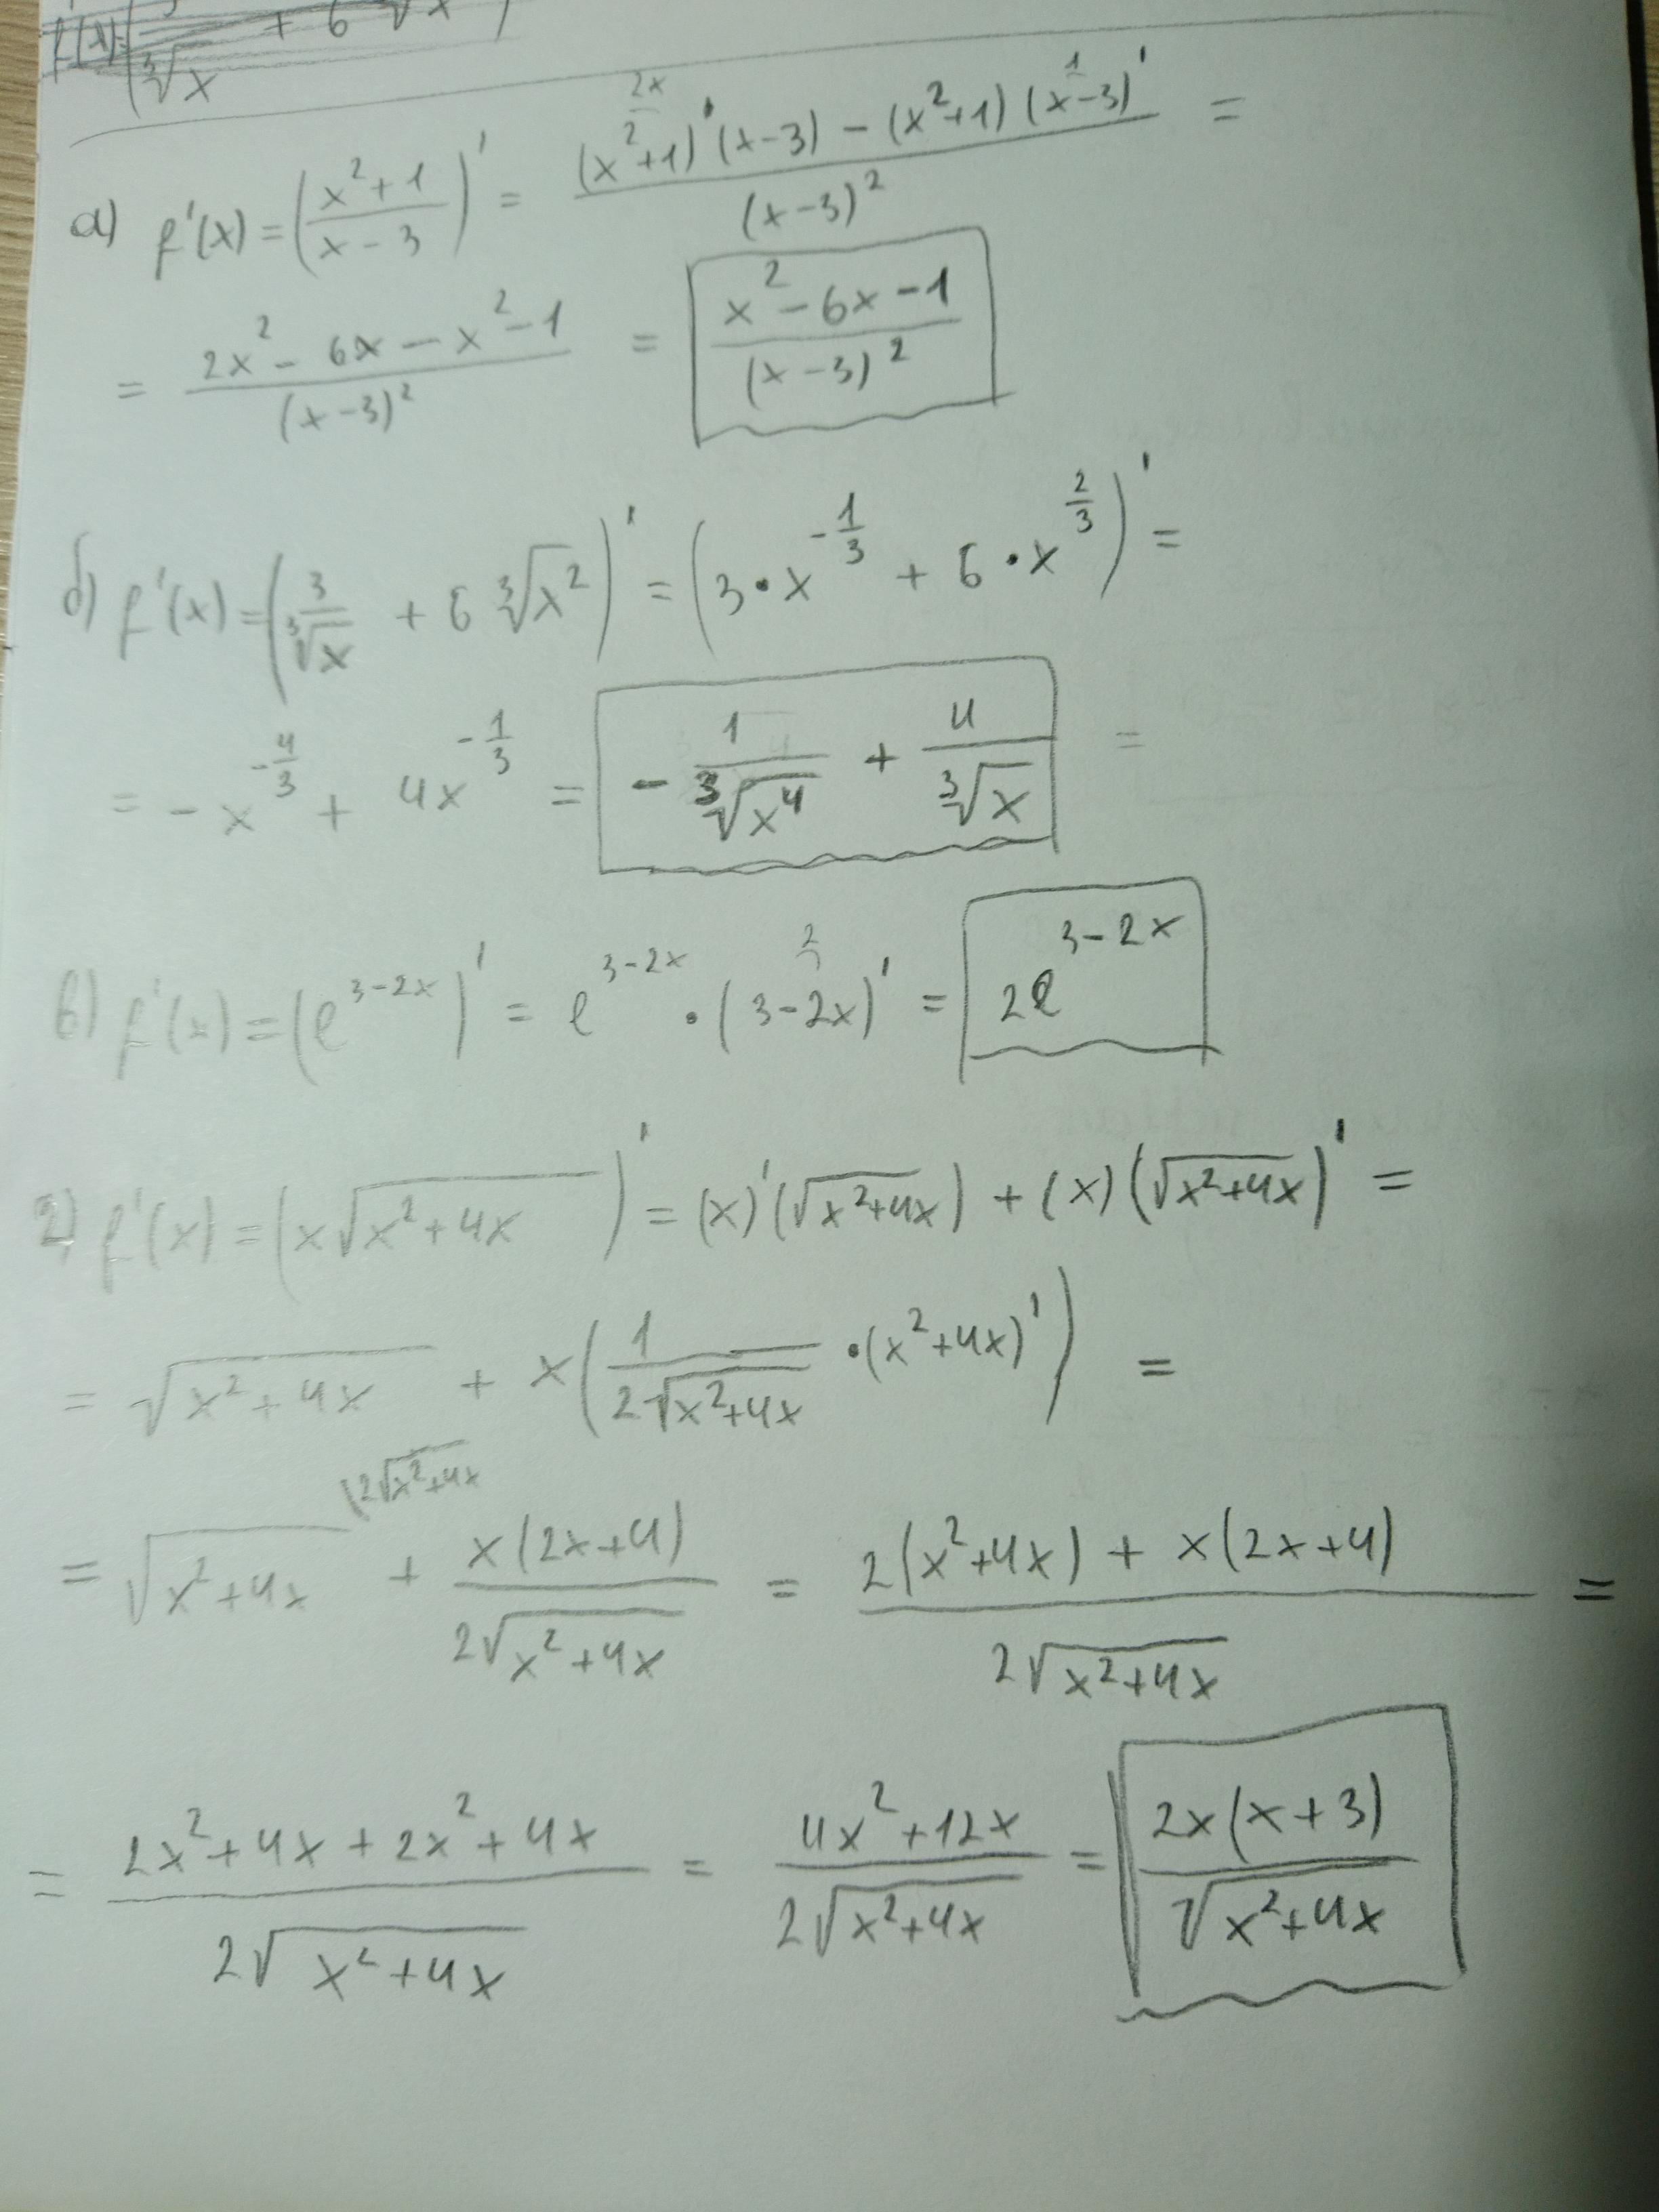 f'(x)=( 3/∛x + 6 ∛x )
а) f'(x)=((x²+1)/(x-3))' = ((x²+1)'(x-3) - (x²+1)(x-3)')/(x-3)² =
2x 1
= (2x²-6x-x²-1)/(x-3)² = (x²-6x-1)/(x-3)²
б) f'(x)=(3/∛x + 6∛x²)' = (3·x^(-1/3) + 6·x^(2/3))' =
= -x^(-4/3) + 4x^(-1/3) = -1/∛x⁴ + 4/∛x =
в) f'(x)=(e^(3-2x))' = e^(3-2x)·(3-2x)' = 2e^(3-2x)
2
г) f'(x)=(x√(x²+4x))' = (x)'(√(x²+4x)) + (x)(√(x²+4x))' =
= √(x²+4x) + x(1/(2√(x²+4x))·(x²+4x)') =
(2√(x²+4x)
= √(x²+4x) + x(2x+4)/(2√(x²+4x)) = (2(x²+4x) + x(2x+4))/(2√(x²+4x)) =
= (2x²+4x+2x²+4x)/(2√(x²+4x)) = (4x²+12x)/(2√(x²+4x)) = 2x(x+3)/√(x²+4x)